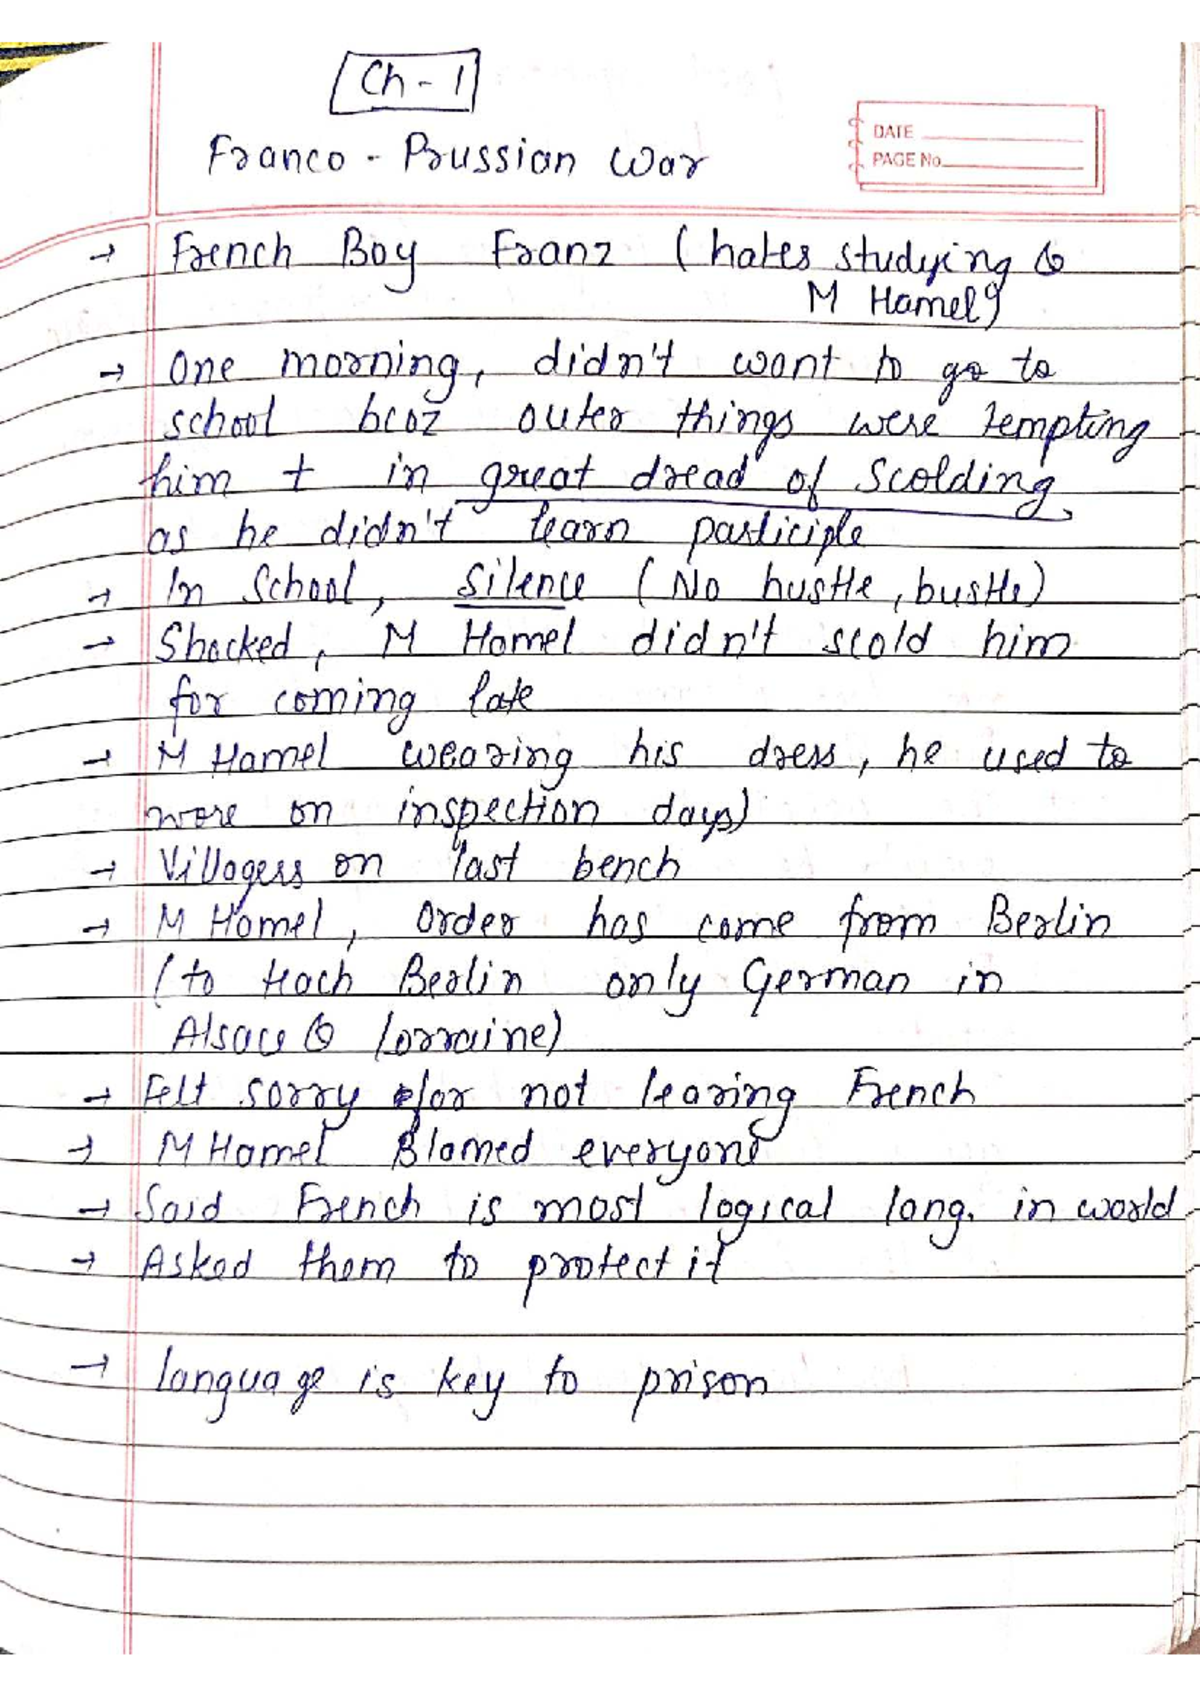 Ch - 1
DATE
PAGE No.
Franco - Prussian War
→ French Boy Franz (hates studying &
M Hamel)
→ One morning, didn't want to go to
school bcoz outer things were tempting
him + in great dread of scolding,
as he didn't learn participle
→ In School, Silence (No hustle, bustle)
→ Shocked, M Hamel didn't scold him
for coming late
→ M Hamel wearing his dress, he used to
wore on inspection days)
→ Villagers on last bench
→ M Hamel, Order has come from Berlin
(to teach Berlin only German in
Alsace & Lorraine)
→ Felt sorry for not learing French
→ M Hamel Blamed everyone
→ Said French is most logical lang. in world
→ Asked them to protect it
→ language is key to prison